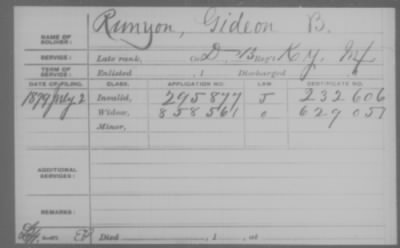 NAME OF SOLDIER: Runyon, Gideon B.
SERVICE: Late rank, Co. D, 13 Reg't Ky. Inf
TERM OF SERVICE: Enlisted , 1 Discharged , 1
DATE OF FILING. CLASS. APPLICATION NO. LAW CERTIFICATE NO.
1879 July 2 Invalid, 295877 J 232606
Widow, 858561 629057
Minor,
ADDITIONAL SERVICES:
REMARKS:
Died , 1 , at